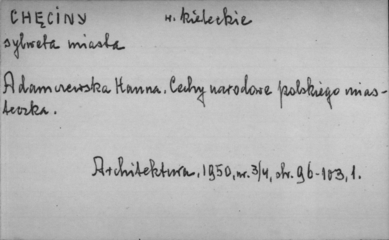 CHĘCINY w. kieleckie
sylweta miasta
Adamczewska Hanna. Cechy narodowe polskiego mias-
teczka.
Architektura, 1950, nr. 3/4, str. 96-103, 1.